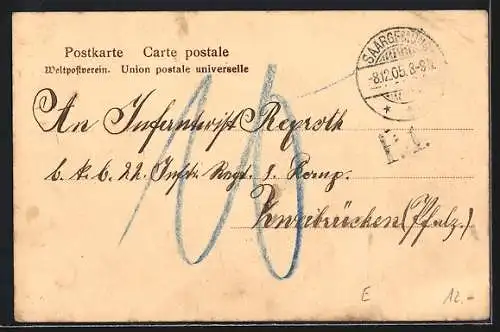 Postkarte Carte postale
Weltpostverein. Union postale universelle
SAARGEMÜND
8.12.05. 8-9V.
An Infanterist Reproth
b. k. b. 22. Inftr. Regt. 8. Komp.
Zweibrücken (Pfalz.)
10
E 12.-